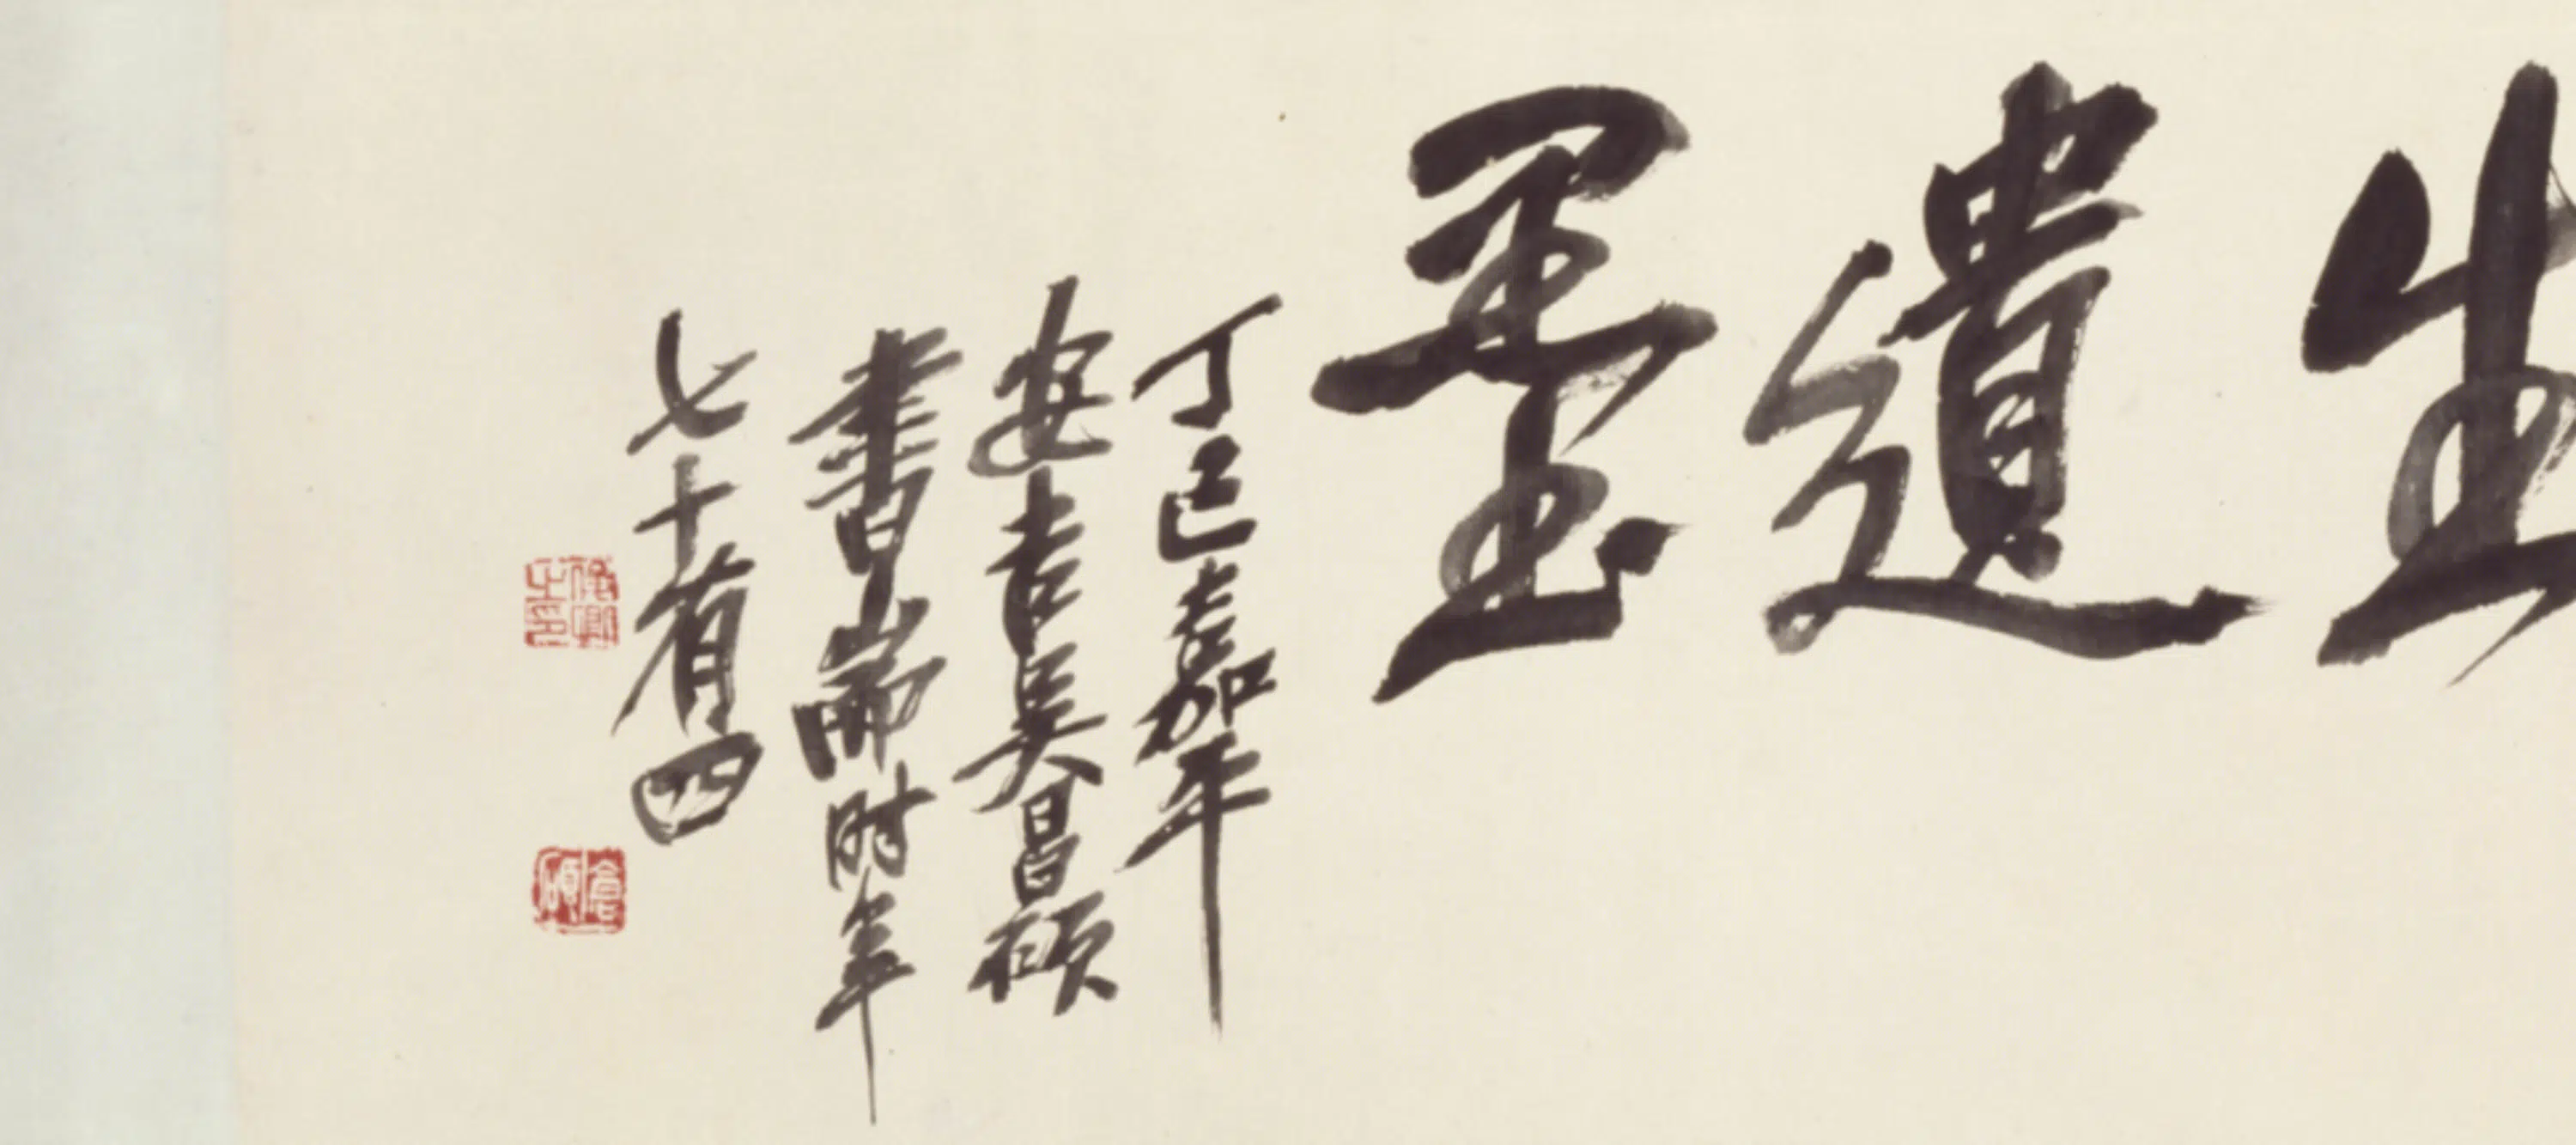 生遺墨
丁巳嘉平
安吉吳昌碩
書耑時年
七十有四
俊卿之印
倉碩